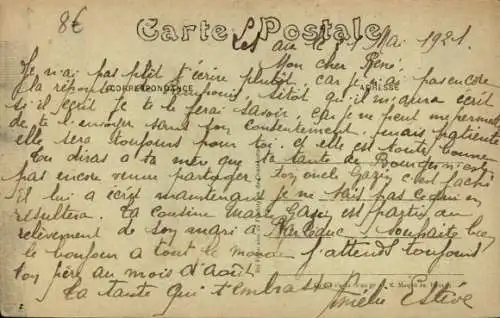 8€
Carte Postale
Les 1 Mai 1921.
Mon cher René.
Je n'ai pas plut t'écrire plutôt, car je n'ai pas encore
la réponse sitôt qu'il m'aura écrit
CORRESPONDANCE
ADRESSE
s'il écrit je te le ferai savoir, car je ne peut me permettre
de te l'envoyer sans son consentement, mais patiente
elle sera toujours pour toi, et elle est toute bonne
Tu diras a ta mère que ta tante de n'est
pas encore venue partager ton oncle Gazin c'est faché
il lui a écrit maintenant je ne sais pas ce qui en
resultera. Ta cousine Marie Gazin est partie au
relèvement de son mari a Bar le Duc souhaite bien
le bonjour a tout le monde J'attends toujours
ton père au mois d'août.
Ta tante qui t'embrasse
Amélie Estève